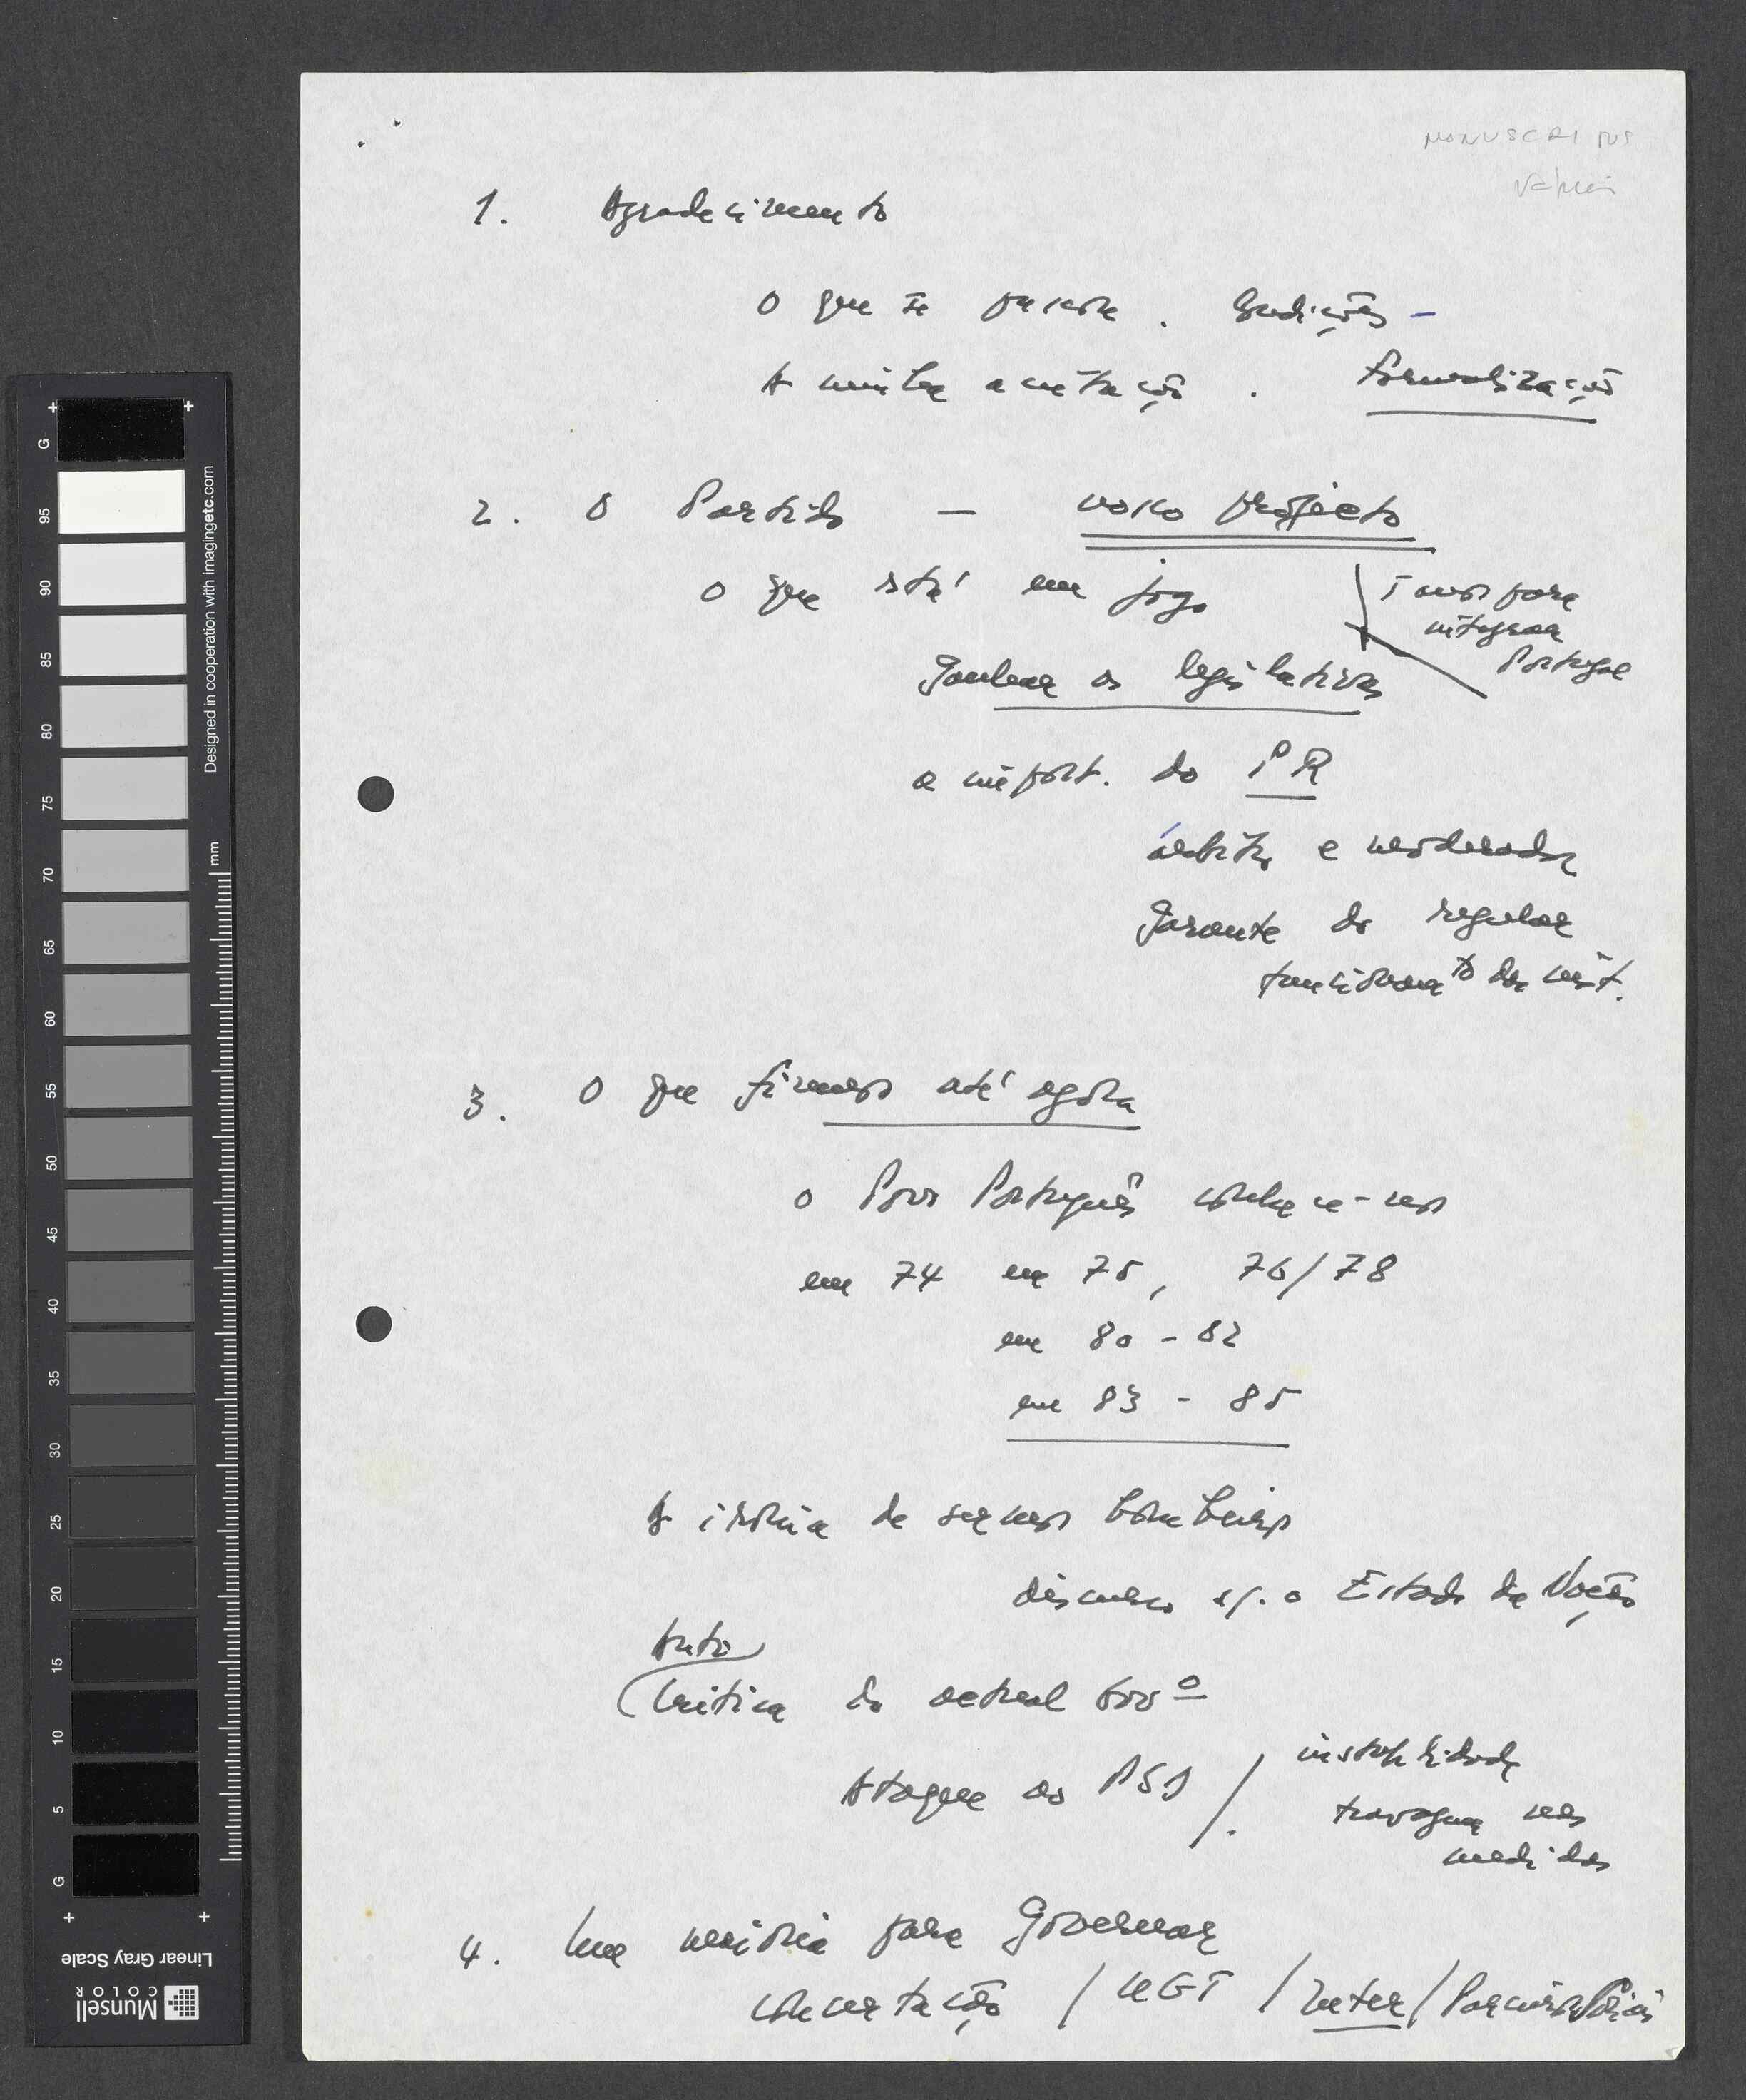 MANUSCRITOS
vários
1. Agradecimento
O que se passou. Condições -
A minha aceitação. Formalização
2. O Partido — nosso projecto
o que está em jogo
5 anos para
integrar
Portugal
Ganhar as legislativas
a import. do PR
árbitro e moderador
garante do regular
funcionamto das inst.
3. O que fizemos até agora
o Povo Português conhece-nos
em 74 em 75, 76/78
em 80 - 82
em 83 - 85
A ironia de sermos bombeiros
discurso s/. o Estado da Nação
Auto
Crítica do actual Govº
Ataque ao PSD /.
instabilidade
travagem nas
medidas
4. Uma maioria para Governar
concertação / UGT / Inter / Parceiros Sociais
G 95 90 85 80 75 70 65 60 55 50 45 40 35 30 25 20 15 10 5 G
mm
Designed in cooperation with imagingetc.com
Munsell
COLOR
Linear Gray Scale